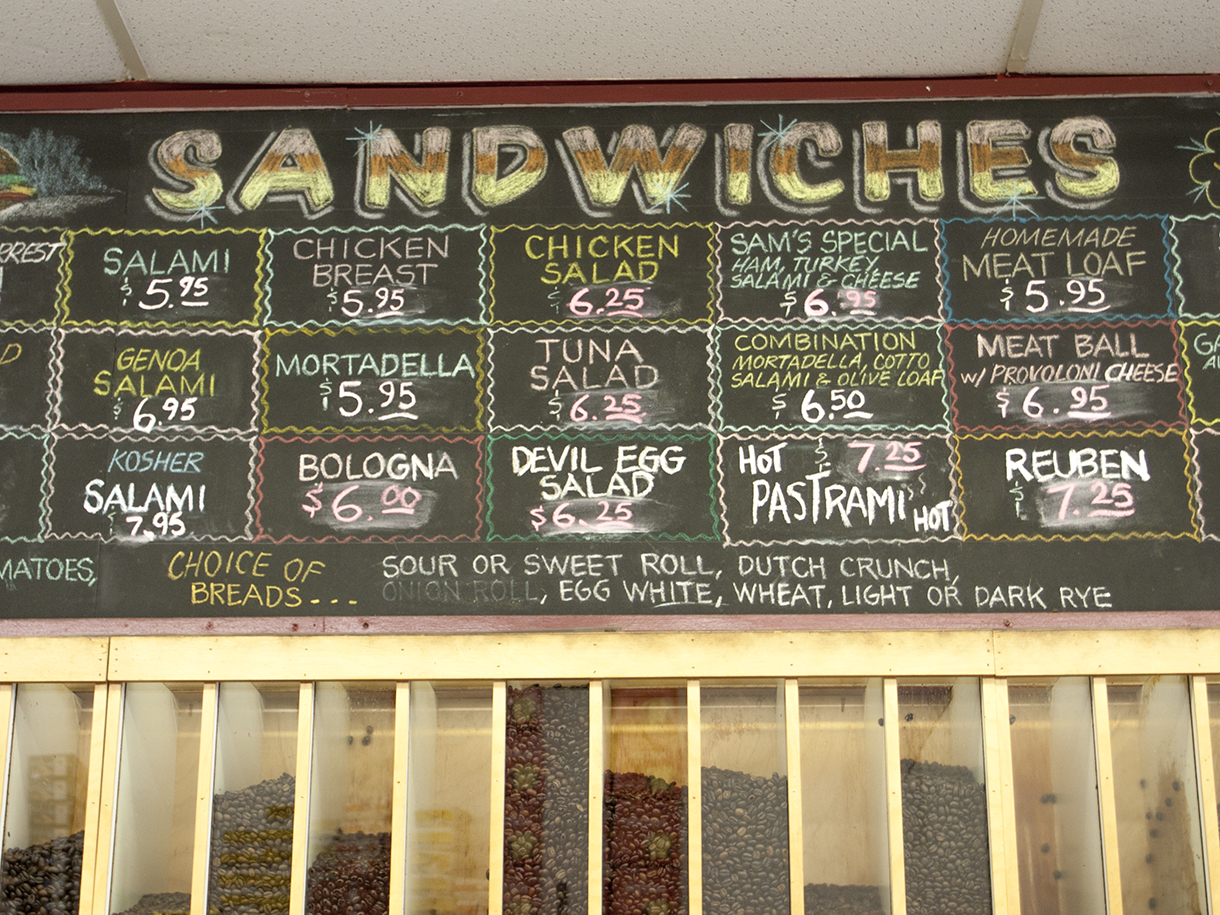 SANDWICHES
SALAMI
$5.95
CHICKEN
BREAST
$5.95
CHICKEN
SALAD
$6.25
SAM'S SPECIAL
HAM, TURKEY,
SALAMI & CHEESE
$6.95
HOMEMADE
MEAT LOAF
$5.95
GENOA
SALAMI
$6.95
MORTADELLA
$5.95
TUNA
SALAD
$6.25
COMBINATION
MORTADELLA, COTTO
SALAMI & OLIVE LOAF
$6.50
MEAT BALL
W/ PROVOLONI CHEESE
$6.95
KOSHER
SALAMI
7.95
BOLOGNA
$6.00
DEVIL EGG
SALAD
$6.25
HOT $7.25
PASTRAMI HOT
REUBEN
$7.25
MATOES,
CHOICE OF
BREADS...
SOUR OR SWEET ROLL, DUTCH CRUNCH,
ONION ROLL, EGG WHITE, WHEAT, LIGHT OR DARK RYE